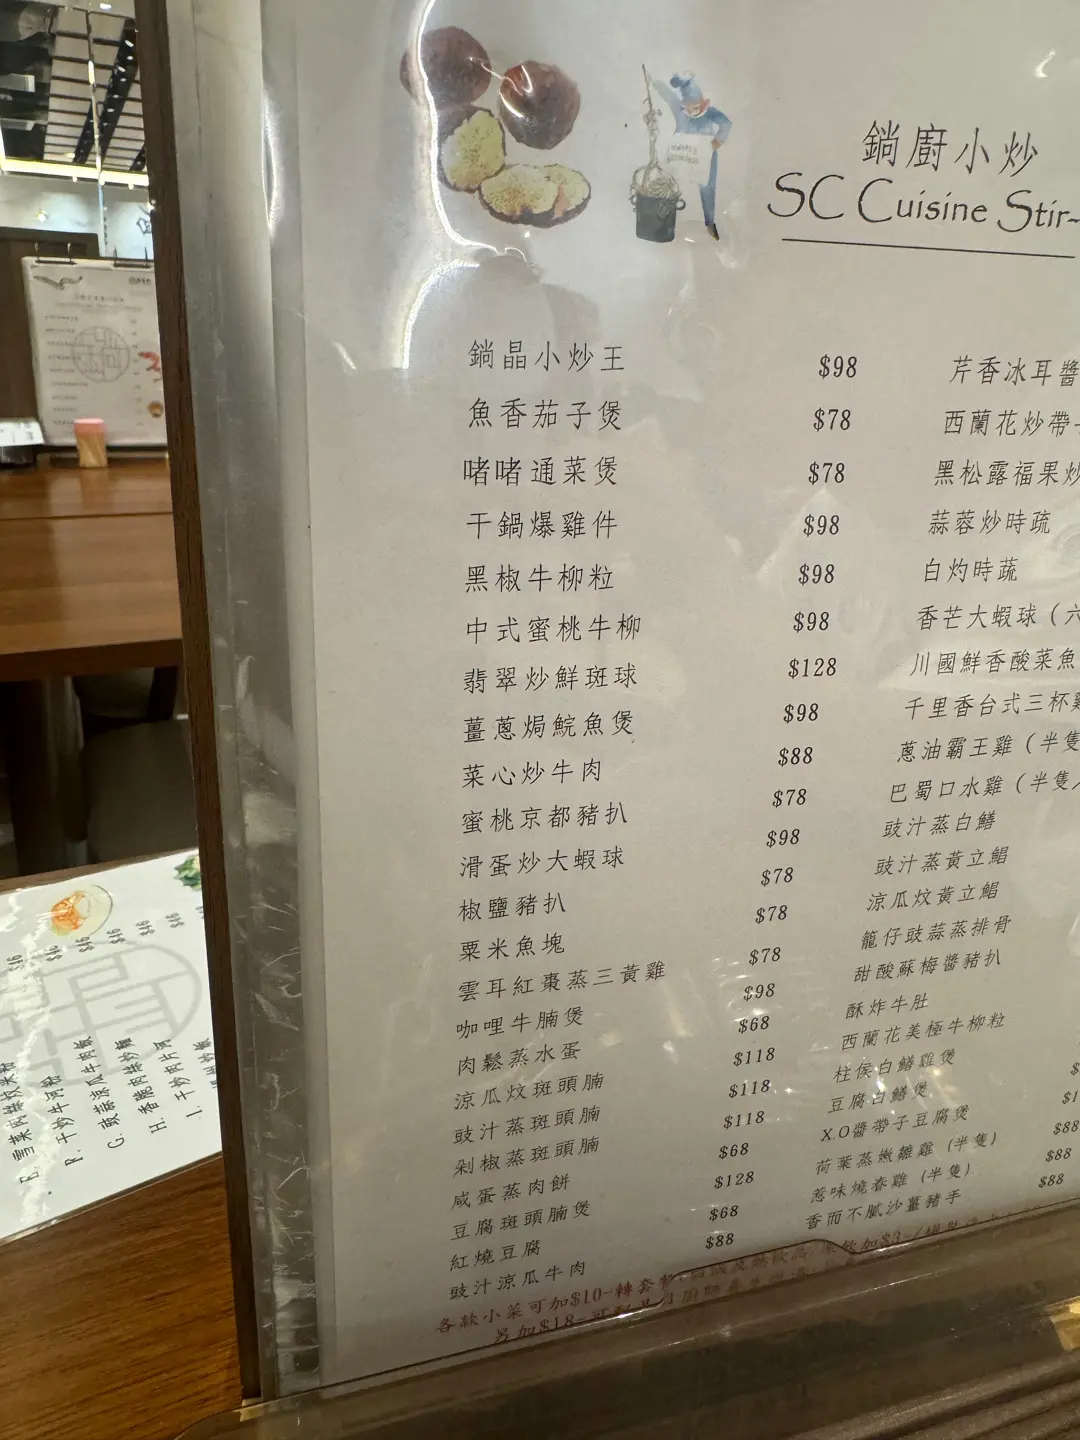 鋿廚小炒
SC Cuisine Stir-
鋿晶小炒王 $98
魚香茄子煲 $78
啫啫通菜煲 $78
干鍋爆雞件 $98
黑椒牛柳粒 $98
中式蜜桃牛柳 $98
翡翠炒鮮斑球 $128
薑蔥焗鯇魚煲 $98
菜心炒牛肉 $88
蜜桃京都豬扒 $78
滑蛋炒大蝦球 $98
椒鹽豬扒 $78
粟米魚塊 $78
雲耳紅棗蒸三黃雞 $78
咖哩牛腩煲 $98
肉鬆蒸水蛋 $68
涼瓜炆斑頭腩 $118
豉汁蒸斑頭腩 $118
剁椒蒸斑頭腩 $118
咸蛋蒸肉餅 $68
豆腐斑頭腩煲 $128
紅燒豆腐 $68
豉汁涼瓜牛肉 $88
芹香冰耳醬
西蘭花炒帶
黑松露福果炒
蒜蓉炒時蔬
白灼時蔬
香芒大蝦球（六
川國鮮香酸菜魚
千里香台式三杯雞
蔥油霸王雞（半隻
巴蜀口水雞（半隻
豉汁蒸白鱔
豉汁蒸黃立鯧
涼瓜炆黃立鯧
籠仔豉蒜蒸排骨
甜酸蘇梅醬豬扒
酥炸牛肚
西蘭花美極牛柳粒
柱侯白鱔雞煲
豆腐白鱔煲
X.O醬帶子豆腐煲
荷葉蒸嫩雛雞（半隻） $88
惹味燒春雞（半隻） $88
香而不膩沙薑豬手 $88
各款小菜可加$10-轉套餐
另加$18-
E.
F. 干炒牛河
G. 豉蒜涼瓜牛肉飯
H.
I. 干炒肉片河
$46 $46 $46 $46 $46 $46